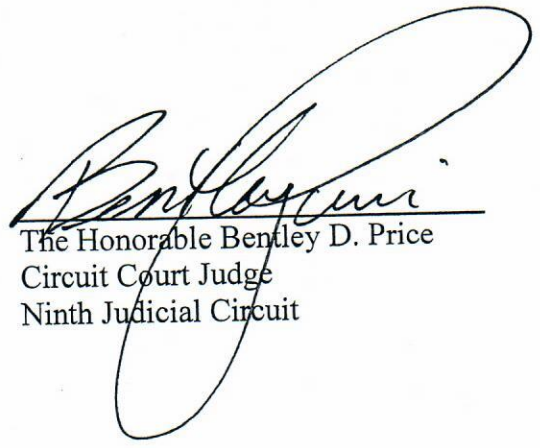 Bentley Price
The Honorable Bentley D. Price
Circuit Court Judge
Ninth Judicial Circuit